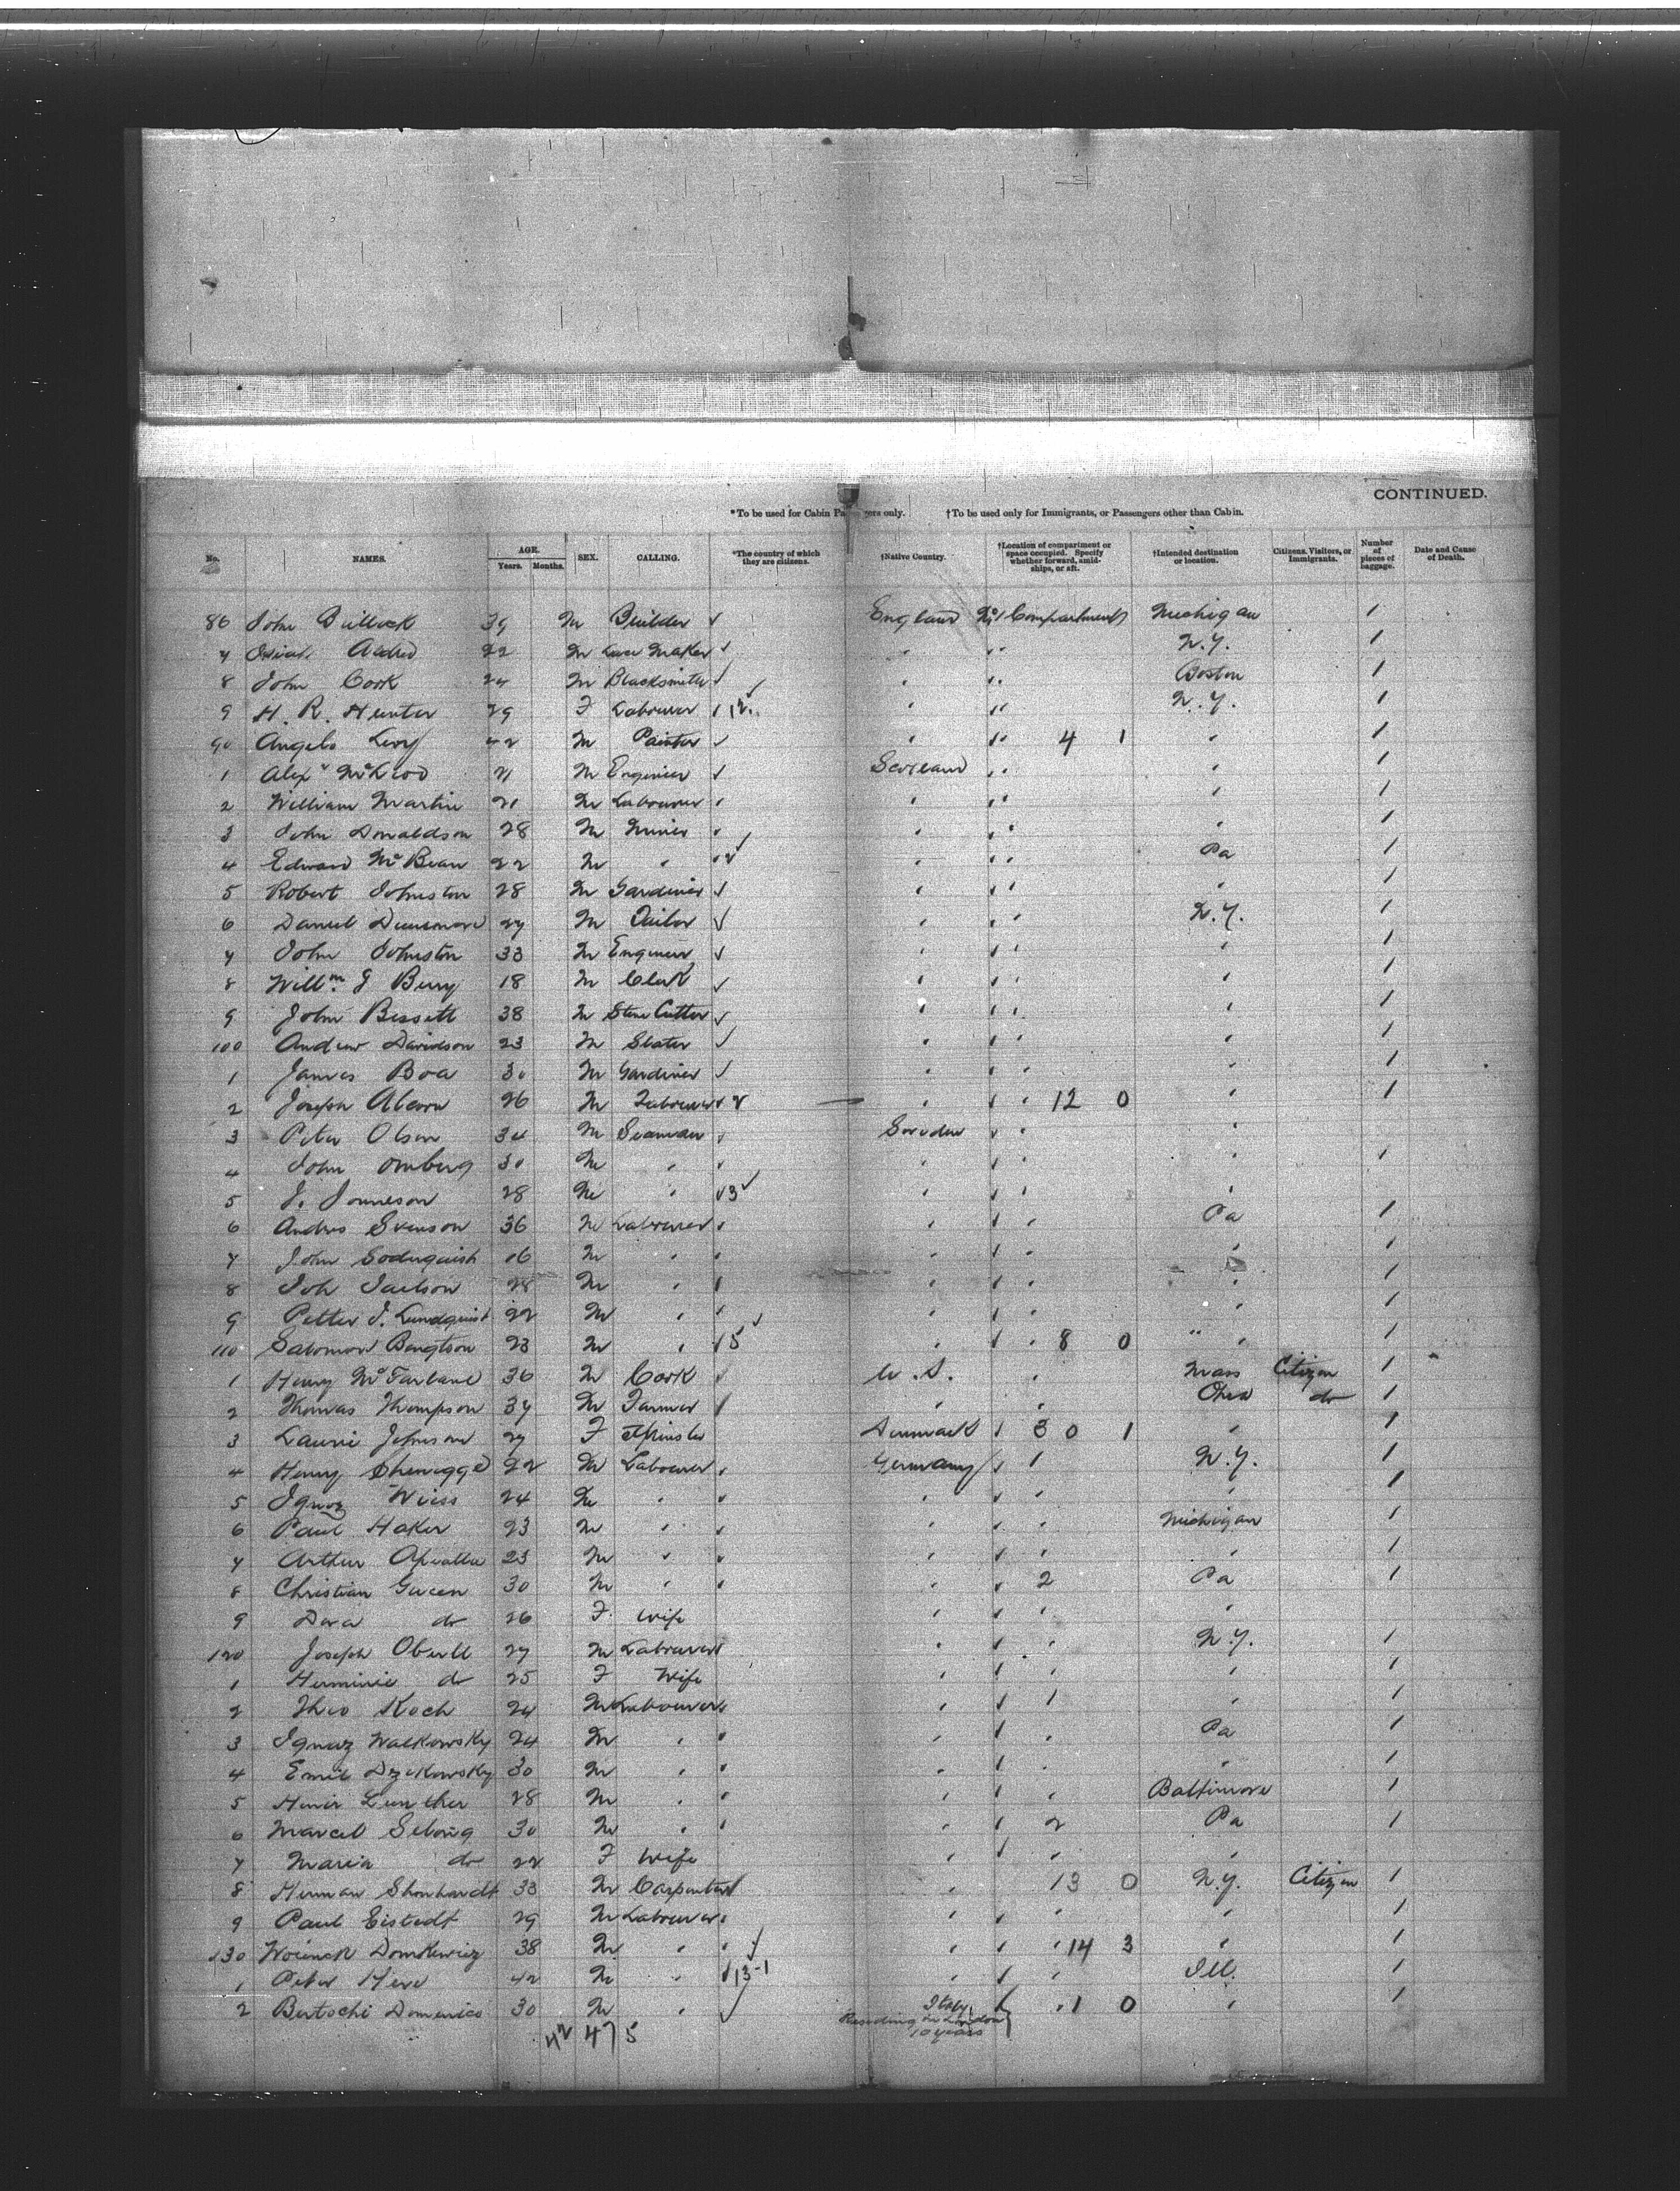 CONTINUED.
*To be used for Cabin Passengers only. †To be used only for Immigrants, or Passengers other than Cabin.
No. NAMES. AGE. Years. Months. SEX. CALLING. *The country of which they are citizens. †Native Country. †Location of compartment or space occupied. Specify whether forward, amidships, or aft. †Intended destination or location. Citizens, Visitors, or Immigrants. Number of pieces of baggage. Date and Cause of Death.
86 John Bullock 39 M Builder ✓ England No 1 Compartment Michigan 1
7 Aldred 22 M Lace Maker ✓ " " N.Y. 1
8 John Cook 24 M Blacksmith ✓ " " Boston 1
9 H. R. Hunter 29 F Labourer 12 ✓ " " N.Y. 1
90 Angelo Levy 42 M Painter ✓ " " 4 1 " 1
1 Alexr McLeod 21 M Engineer ✓ Scotland " " 1
2 William Martin 21 M Labourer " " " 1
3 John Donaldson 28 M Miner " " " 1
4 Edward McBean 22 M " 2 ✓ " " Pa 1
5 Robert Johnston 28 M Gardiner ✓ " " " 1
6 Daniel Dunsmore 27 M Tailor ✓ " " N.Y. 1
7 John Johnston 33 M Engineer ✓ " " " 1
8 Willm J Berry 18 M Clerk ✓ " " " 1
9 John Bissett 38 M Stone Cutter ✓ " " " 1
100 Andrew Davidson 23 M Slater ✓ " " " 1
1 James Boa 30 M Gardiner ✓ " " " 1
2 Joseph 26 M Labourer " " 12 0 " 1
3 Peter Olson 34 M Seaman Sweden " "
4 John Omberg 30 M " " " " 1
5 J. 28 M " 3 ✓ " " "
6 Andres Svenson 36 M Labourer " " Pa 1
7 John Soderquist 26 M " " " " 1
8 Joh 28 M " " " " 1
9 Petter J. Lundquist 22 M " ✓ " " " 1
110 Salomon Bengtson 23 M " 5 " " 8 0 " " 1
1 Henry McFarlane 36 M Cook ✓ U.S. " Mass Citizen 1
2 Thomas Thompson 37 M Farmer " " do 1
3 Johnson 27 F Spinster Denmark 3 0 1 " 1
4 Henry 22 M Labourer Germany 1 N.Y. 1
5 Ignaz Weiss 24 M " " " " 1
6 Paul Haker 23 M " " " Michigan 1
7 Arthur 23 M " " " " 1
8 Christian 30 M " " 2 Pa 1
9 Dora do 26 F Wife " " "
120 Joseph Oberll 27 M Labourer " " N.Y. 1
1 Herminie do 25 F Wife " " " 1
2 Theo Koch 24 M Labourer " 1 " 1
3 Ignaz Walkowsky 24 M " " " Pa 1
4 Emil Dzikowsky 30 M " " " " 1
5 28 M " " " Baltimore 1
6 Marcel 30 M " " 2 Pa 1
7 Maria do 22 F Wife " " "
8 Herman Shonhardt 33 M Carpenter " 13 0 N.Y. Citizen 1
9 Paul Eistedt 29 M Labourer " " " 1
130 Domkewicz 38 M " ✓ " " 14 3 " 1
1 Peter 42 M " 13-1 " " Ill. 1
2 Bertochi Domenico 30 M " ✓ Italy 1 0 " 1
Residing in London
10 years
42 47 5